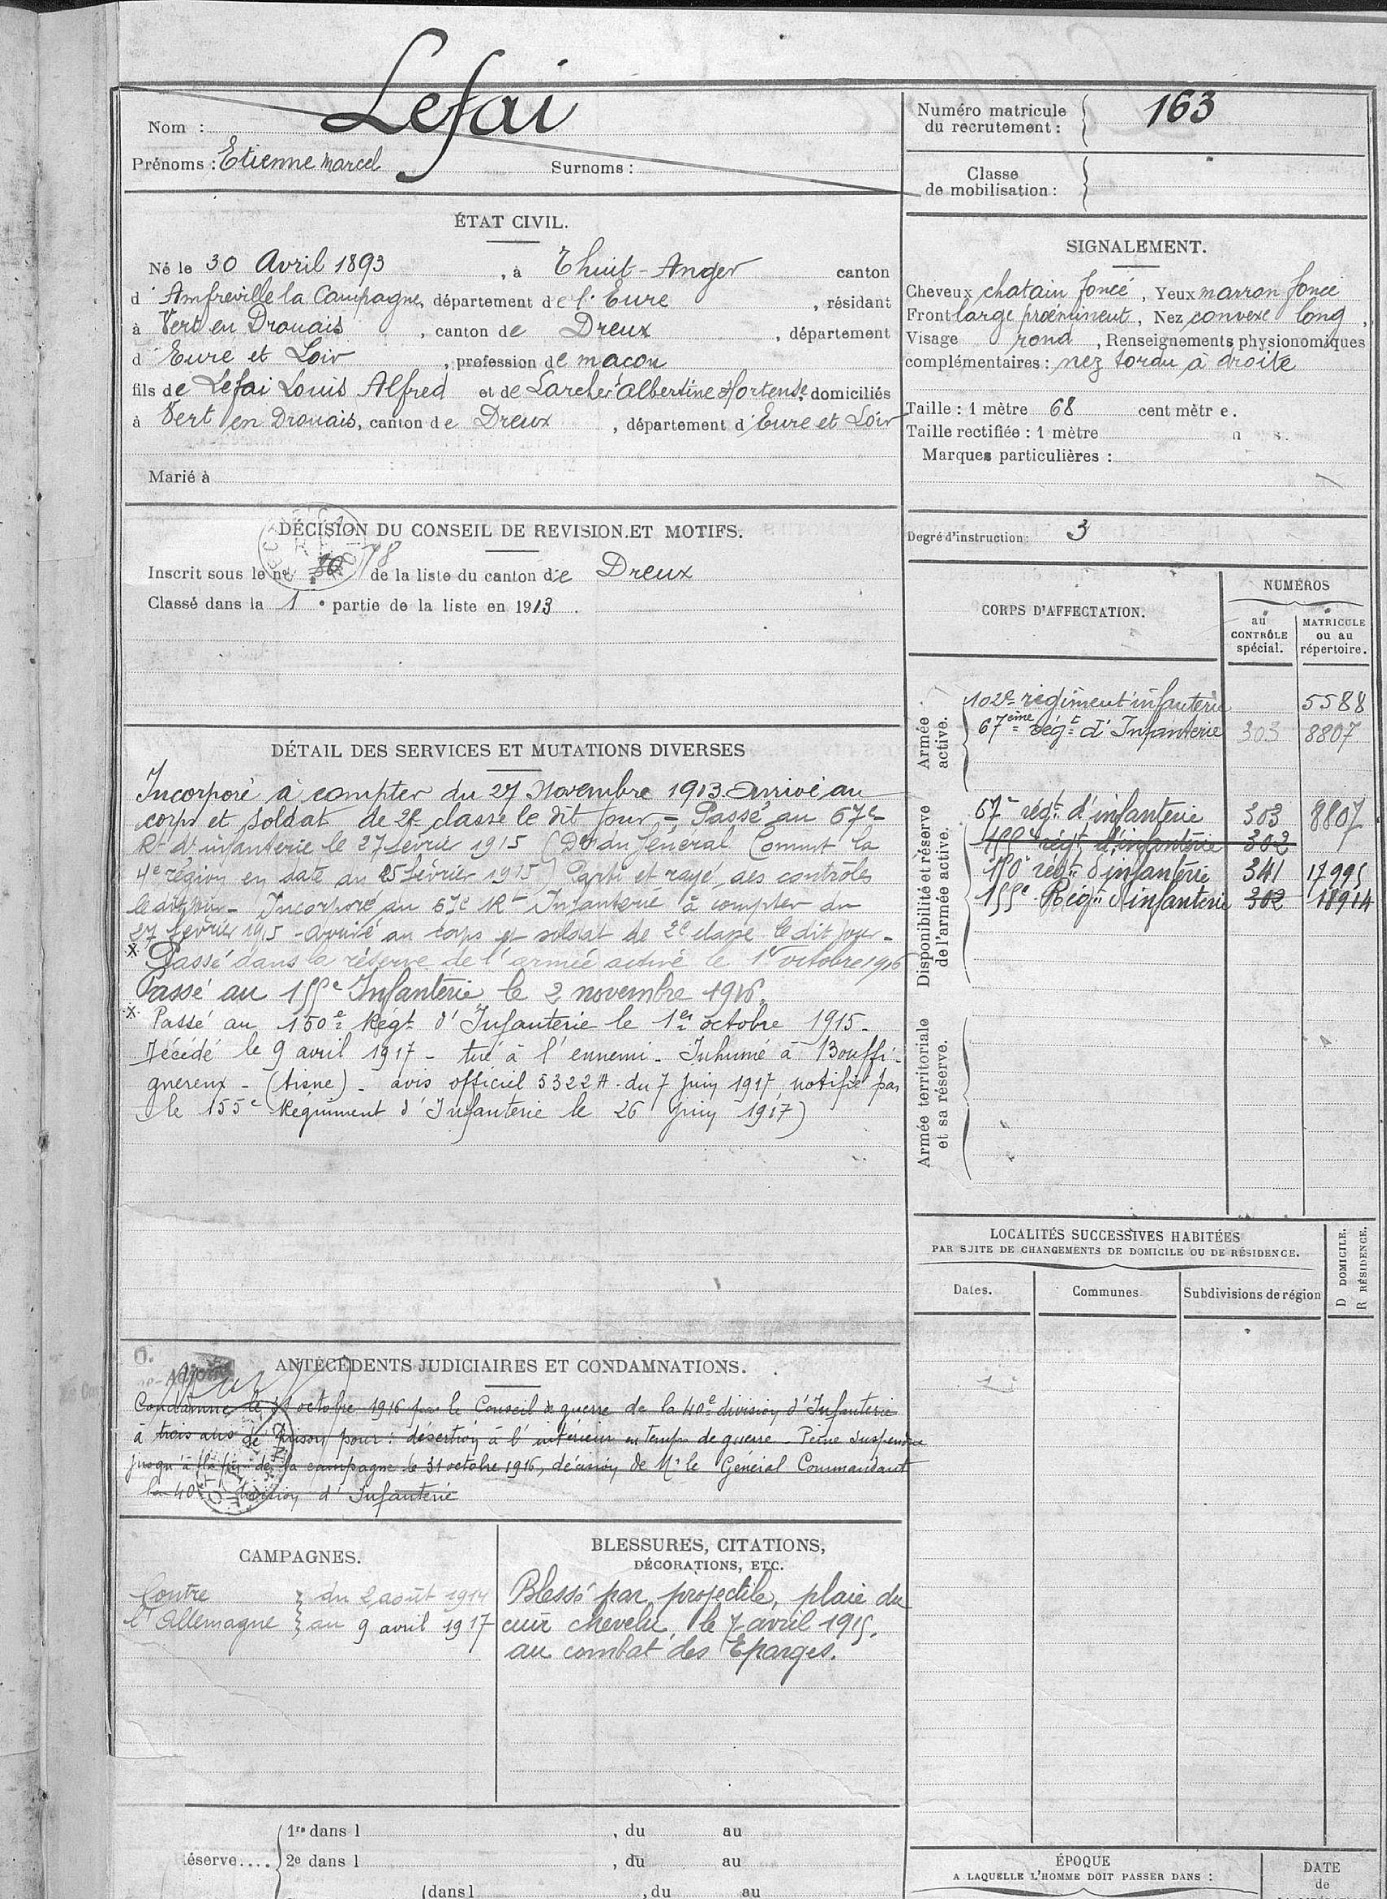 Nom : Lefai
Prénoms : Etienne Marcel Surnoms :
Numéro matricule
du recrutement : 163
Classe
de mobilisation :
ÉTAT CIVIL.
Né le 30 Avril 1893, à Thuit-Anger canton
d'Amfreville la Campagne, département de l'Eure, résidant
à Vert en Drouais, canton de Dreux, département
d'Eure et Loir, profession de maçon
fils de Lefai Louis Alfred et de Larcher Albertine Hortense, domiciliés
à Vert en Drouais, canton de Dreux, département d'Eure et Loir
Marié à
SIGNALEMENT.
Cheveux chatain foncé, Yeux marron foncé
Front large proeminent, Nez convexe long,
Visage rond, Renseignements physionomiques
complémentaires : nez tordu à droite
Taille : 1 mètre 68 centimètre.
Taille rectifiée : 1 mètre
Marques particulières :
DÉCISION DU CONSEIL DE REVISION ET MOTIFS.
Inscrit sous le nº 78 de la liste du canton de Dreux
Classé dans la 1e partie de la liste en 1913.
Degré d'instruction : 3
CORPS D'AFFECTATION.
NUMÉROS
au
CONTRÔLE
spécial.
MATRICULE
ou au
répertoire.
Armée
active.
102e régiment infanterie 5588
67ème régt d'Infanterie 303 8807
Disponibilité et réserve
de l'armée active.
67e régt d'infanterie 303 8807
155e régt d'infanterie 302
150e régt d'infanterie 341 17995
155e Régt d'infanterie 302 18914
Armée territoriale
et sa réserve.
DÉTAIL DES SERVICES ET MUTATIONS DIVERSES
Incorporé à compter du 27 Novembre 1913. Arrivé au
corps et soldat de 2e classe le dit jour - Passé au 67e
Rt d'infanterie le 27 février 1915 (Don du Général Commt la
4e région en date du 25 février 1915) Parti et rayé des contrôles
le dit jour - Incorporé au 67e Rt Infanterie à compter du
27 février 1915 - arrivé au corps et soldat de 2e classe le dit jour -
x Passé dans la réserve de l'armée active le 1er octobre 1916
Passé au 155e Infanterie le 2 novembre 1916.
x Passé au 150e Régt d'Infanterie le 1er octobre 1915 -
Décédé le 9 avril 1917 - tué à l'ennemi - Inhumé à Bouffi-
gnereux - (Aisne) - avis officiel 5322 A - du 7 juin 1917 notifié par
le 155e Régiment d'Infanterie le 26 juin 1917)
LOCALITÉS SUCCESSIVES HABITÉES
PAR SUITE DE CHANGEMENTS DE DOMICILE OU DE RÉSIDENCE.
Dates. Communes Subdivisions de région
D DOMICILE.
R RÉSIDENCE.
ANTÉCÉDENTS JUDICIAIRES ET CONDAMNATIONS.
Condamné le 31 octobre 1916 par le Conseil de guerre de la 40e division d'Infanterie
à trois ans de prison pour : désertion à l'intérieur en temps de guerre - Peine suspendue
jusqu'à la fin de la campagne le 31 octobre 1916, décision de Mr le Général Commandant
la 40e division d'Infanterie
CAMPAGNES.
Contre du 2 août 1914
l'Allemagne au 9 avril 1917
BLESSURES, CITATIONS,
DÉCORATIONS, ETC.
Blessé par projectile, plaie du
cuir chevelu, le 7 avril 1915,
au combat des Eparges.
Réserve....
1re dans l , du au
2e dans l , du au
(dans l , du au
ÉPOQUE
A LAQUELLE L'HOMME DOIT PASSER DANS :
DATE
de